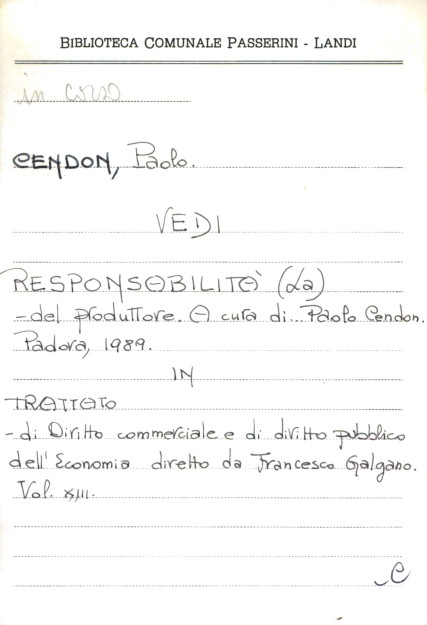 BIBLIOTECA COMUNALE PASSERINI - LANDI
in corso
CENDON, Paolo.
VEDI
RESPONSABILITÀ (La)
- del produttore. A cura di... Paolo Cendon.
Padova, 1989.
IN
TRATTATO
- di Diritto commerciale e di diritto pubblico
dell'Economia diretto da Francesco Galgano.
Vol. XIII.
C